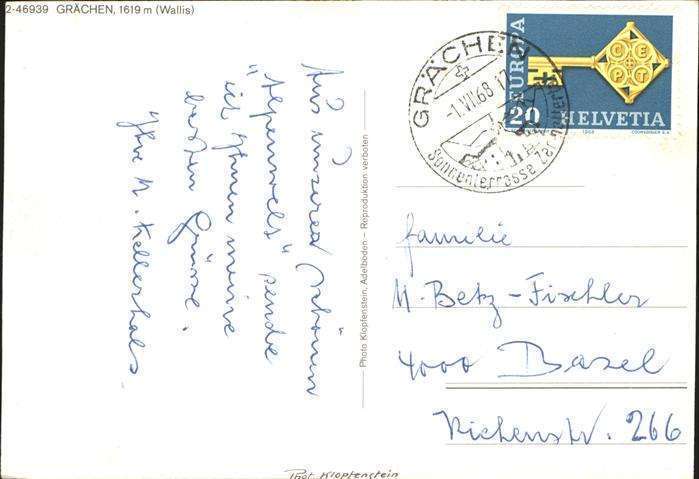 2-46939 GRÄCHEN, 1619 m (Wallis)
Aus unserer schönen
"Alpenwelt" sende
ich Ihnen meine
besten Grüsse.
Ihre M. Kellerhals
Photo Klopfenstein, Adelboden – Reproduktion verboten
GRÄCHEN
-1.VII.68 17
Sonnenterrasse
EUROPA
CEPT
20 HELVETIA
1968 COURVOISIER S.A.
familie
M. Betz-Fischler
4000 Basel
Richenstr. 266
Phot Klopfenstein